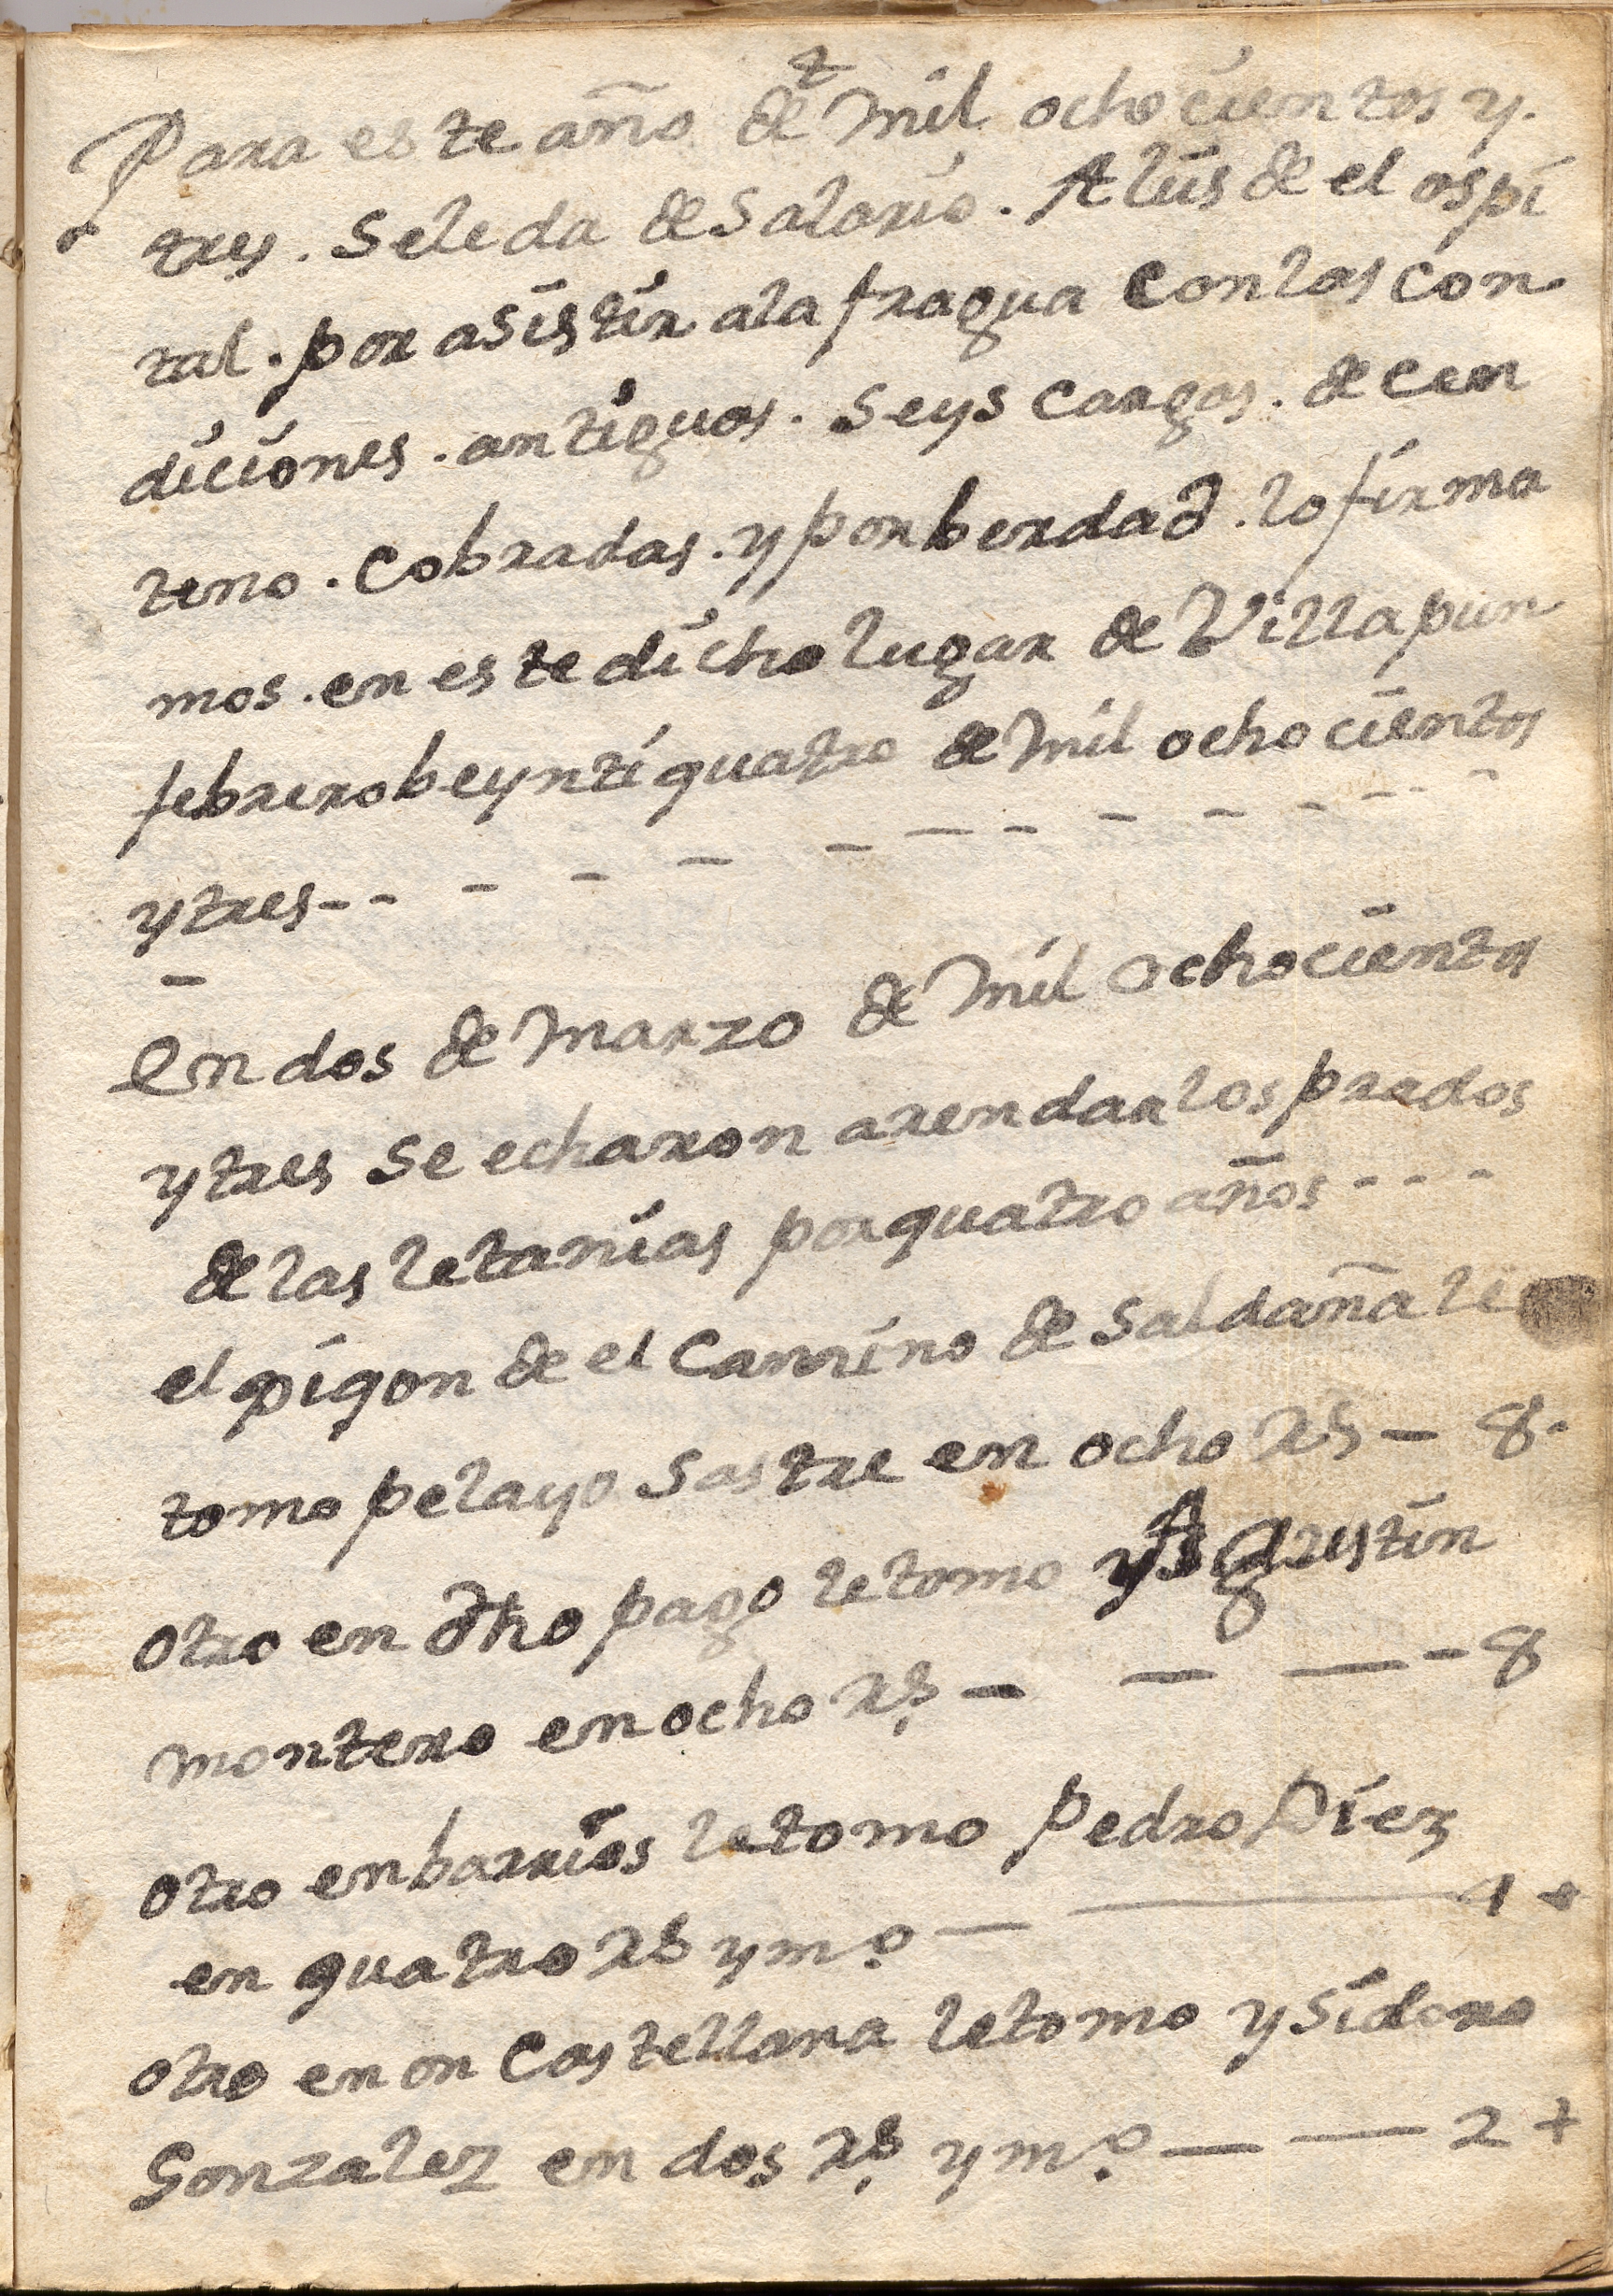 Para este año de mil ochocientos y.
tres. se le da de salario. A luis de el ospi
tal. por asistir ala fragua con las con
diciones. antiguas. seys cargas. de cen
teno. cobradas. y por berdad. lo firma
mos. en este dicho lugar de Villapun
febrero beynti quatro de mil ochocientos
y tres - - - - - - - - - - - - -
En dos de Marzo de mil ochocientos
y tres se echaron arendar los prados
de las letanias por quatro años - - -
el pigon de el Camino de Saldaña le
tomo pelayo Sastre en ocho rs - 8.
otro en dho pago le tomo Agustin
montero en ocho rs. - - - - 8
otro en barrios le tomo Pedro Diez
en quatro rs y mo. - - 4 +
otro en on Castellana le tomo ysidoro
Gonzalez en dos rs. y mo. - - 2 +